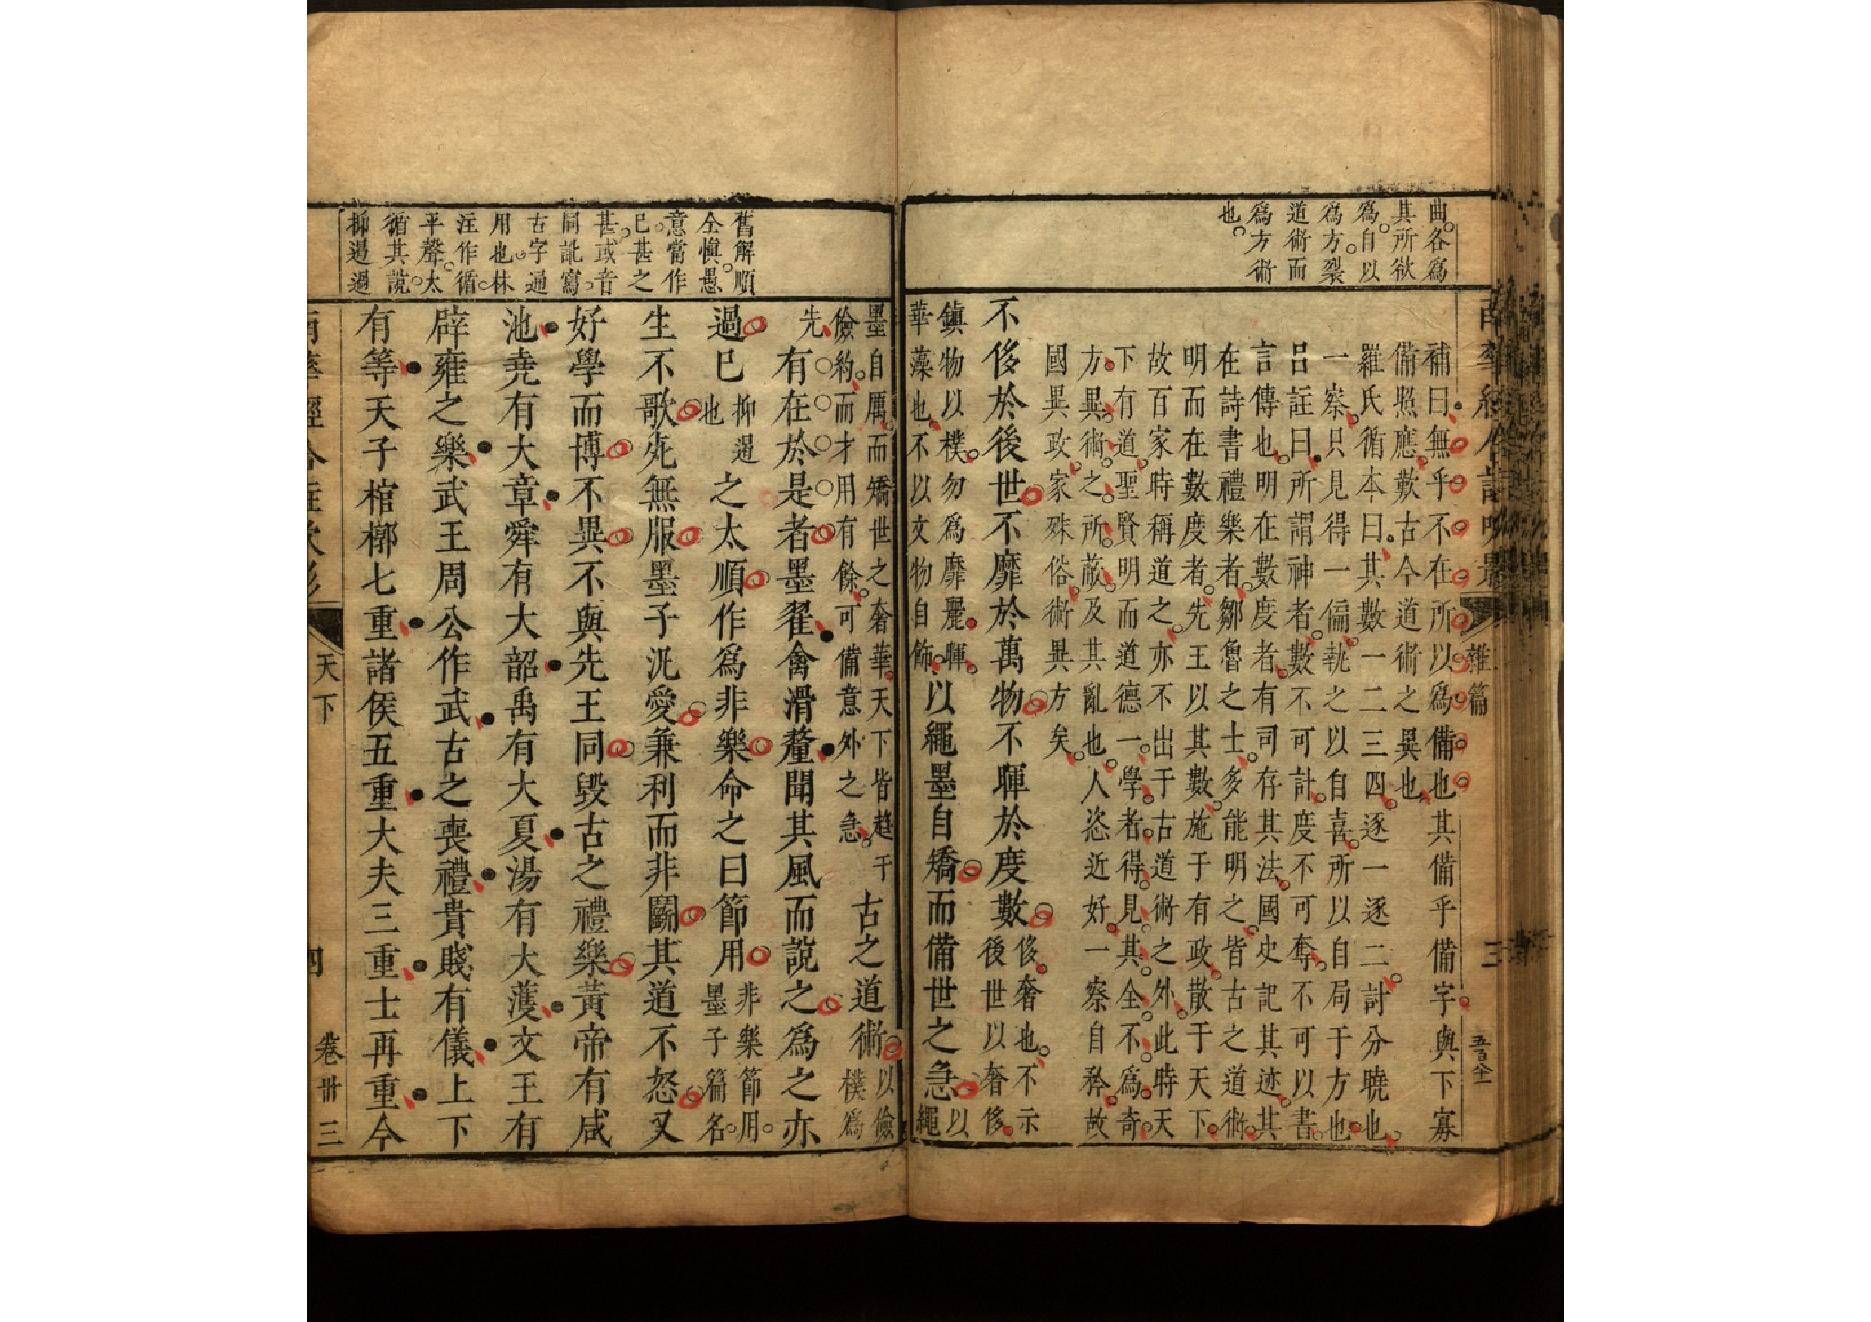 曲各爲
其所欲
爲自以
爲方裂
道術而
爲方術
也
雜篇
三
補曰無乎不在所以爲備也其備乎備字與下寡
備照應歎古今道術之異也
羅氏循本曰其數一二三四逐一逐二討分曉也
一察只見得一偏執之以自喜所以自局于方也
呂註曰所謂神者數不可計度不可奪不可以書
言傳也明在數度者有司存其法國史記其迹其
在詩書禮樂者鄒魯之士多能明之皆古之道術
明而在數度者先王以其數施于有政散于天下
故百家時稱道之亦不出于古道術之外此特天
下有道聖賢明而道德一學者得見其全不爲奇
方異術之所蔽及其亂也人恣近好一察自矜故
國異政家殊俗術異方矣
不侈於後世不靡於萬物不暉於度數侈奢也不示後世以奢侈
鎮物以樸勿爲靡麗暉華藻也不以文物自飾以繩墨自矯而備世之急以繩
舊解順
全愼愚
意當作
已甚之
甚或音
同訛寫
古字通
用也林
注作循
平聲太
循其說
抑遏過
墨自厲而矯世之奢華天下皆趨于儉約而才用有餘可備意外之急古之道術以儉樸爲
先有在於是者墨翟禽滑釐聞其風而說之爲之亦
過已抑遏也之太順作爲非樂命之曰節用非樂節用墨子篇名
生不歌死無服墨子汎愛兼利而非鬬其道不怒又
好學而博不異不與先王同毀古之禮樂黃帝有咸
池堯有大章舜有大韶禹有大夏湯有大濩文王有
辟雍之樂武王周公作武古之喪禮貴賤有儀上下
有等天子棺槨七重諸侯五重大夫三重士再重今
天下
四
卷卌三